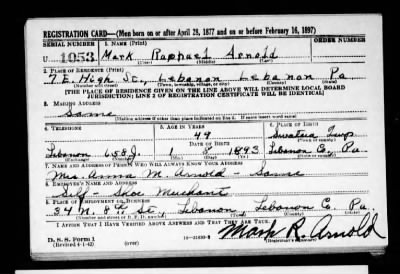 REGISTRATION CARD—(Men born on or after April 28, 1877 and on or before February 16, 1897)
SERIAL NUMBER 1. NAME (Print) ORDER NUMBER
U 1053 Mark Raphael Arnold
(First) (Middle) (Last)
2. PLACE OF RESIDENCE (Print)
7 E. High St., Lebanon Lebanon Pa.
(Number and street) (Town, township, village, or city) (County) (State)
[THE PLACE OF RESIDENCE GIVEN ON THE LINE ABOVE WILL DETERMINE LOCAL BOARD
JURISDICTION; LINE 2 OF REGISTRATION CERTIFICATE WILL BE IDENTICAL]
3. MAILING ADDRESS
Same
(Mailing address if other than place indicated on line 2. If same insert word same)
4. TELEPHONE 5. AGE IN YEARS 6. PLACE OF BIRTH
49 Swatara Twp.
DATE OF BIRTH (Town or county)
Lebanon 658J. 1 8 1893 Lebanon Co. Pa.
(Exchange) (Number) (Mo.) (Day) (Yr.) (State or country)
7. NAME AND ADDRESS OF PERSON WHO WILL ALWAYS KNOW YOUR ADDRESS
Mrs. Anna M. Arnold - Same
8. EMPLOYER'S NAME AND ADDRESS
Self - Shoe Merchant
9. PLACE OF EMPLOYMENT OR BUSINESS
34 N. 8th St. Lebanon Lebanon Co. Pa.
(Number and street or R. F. D. number) (Town) (County) (State)
I AFFIRM THAT I HAVE VERIFIED ABOVE ANSWERS AND THAT THEY ARE TRUE.
D. S. S. Form 1 Mark R. Arnold
(Revised 4-1-42) (over) (Registrant's signature)